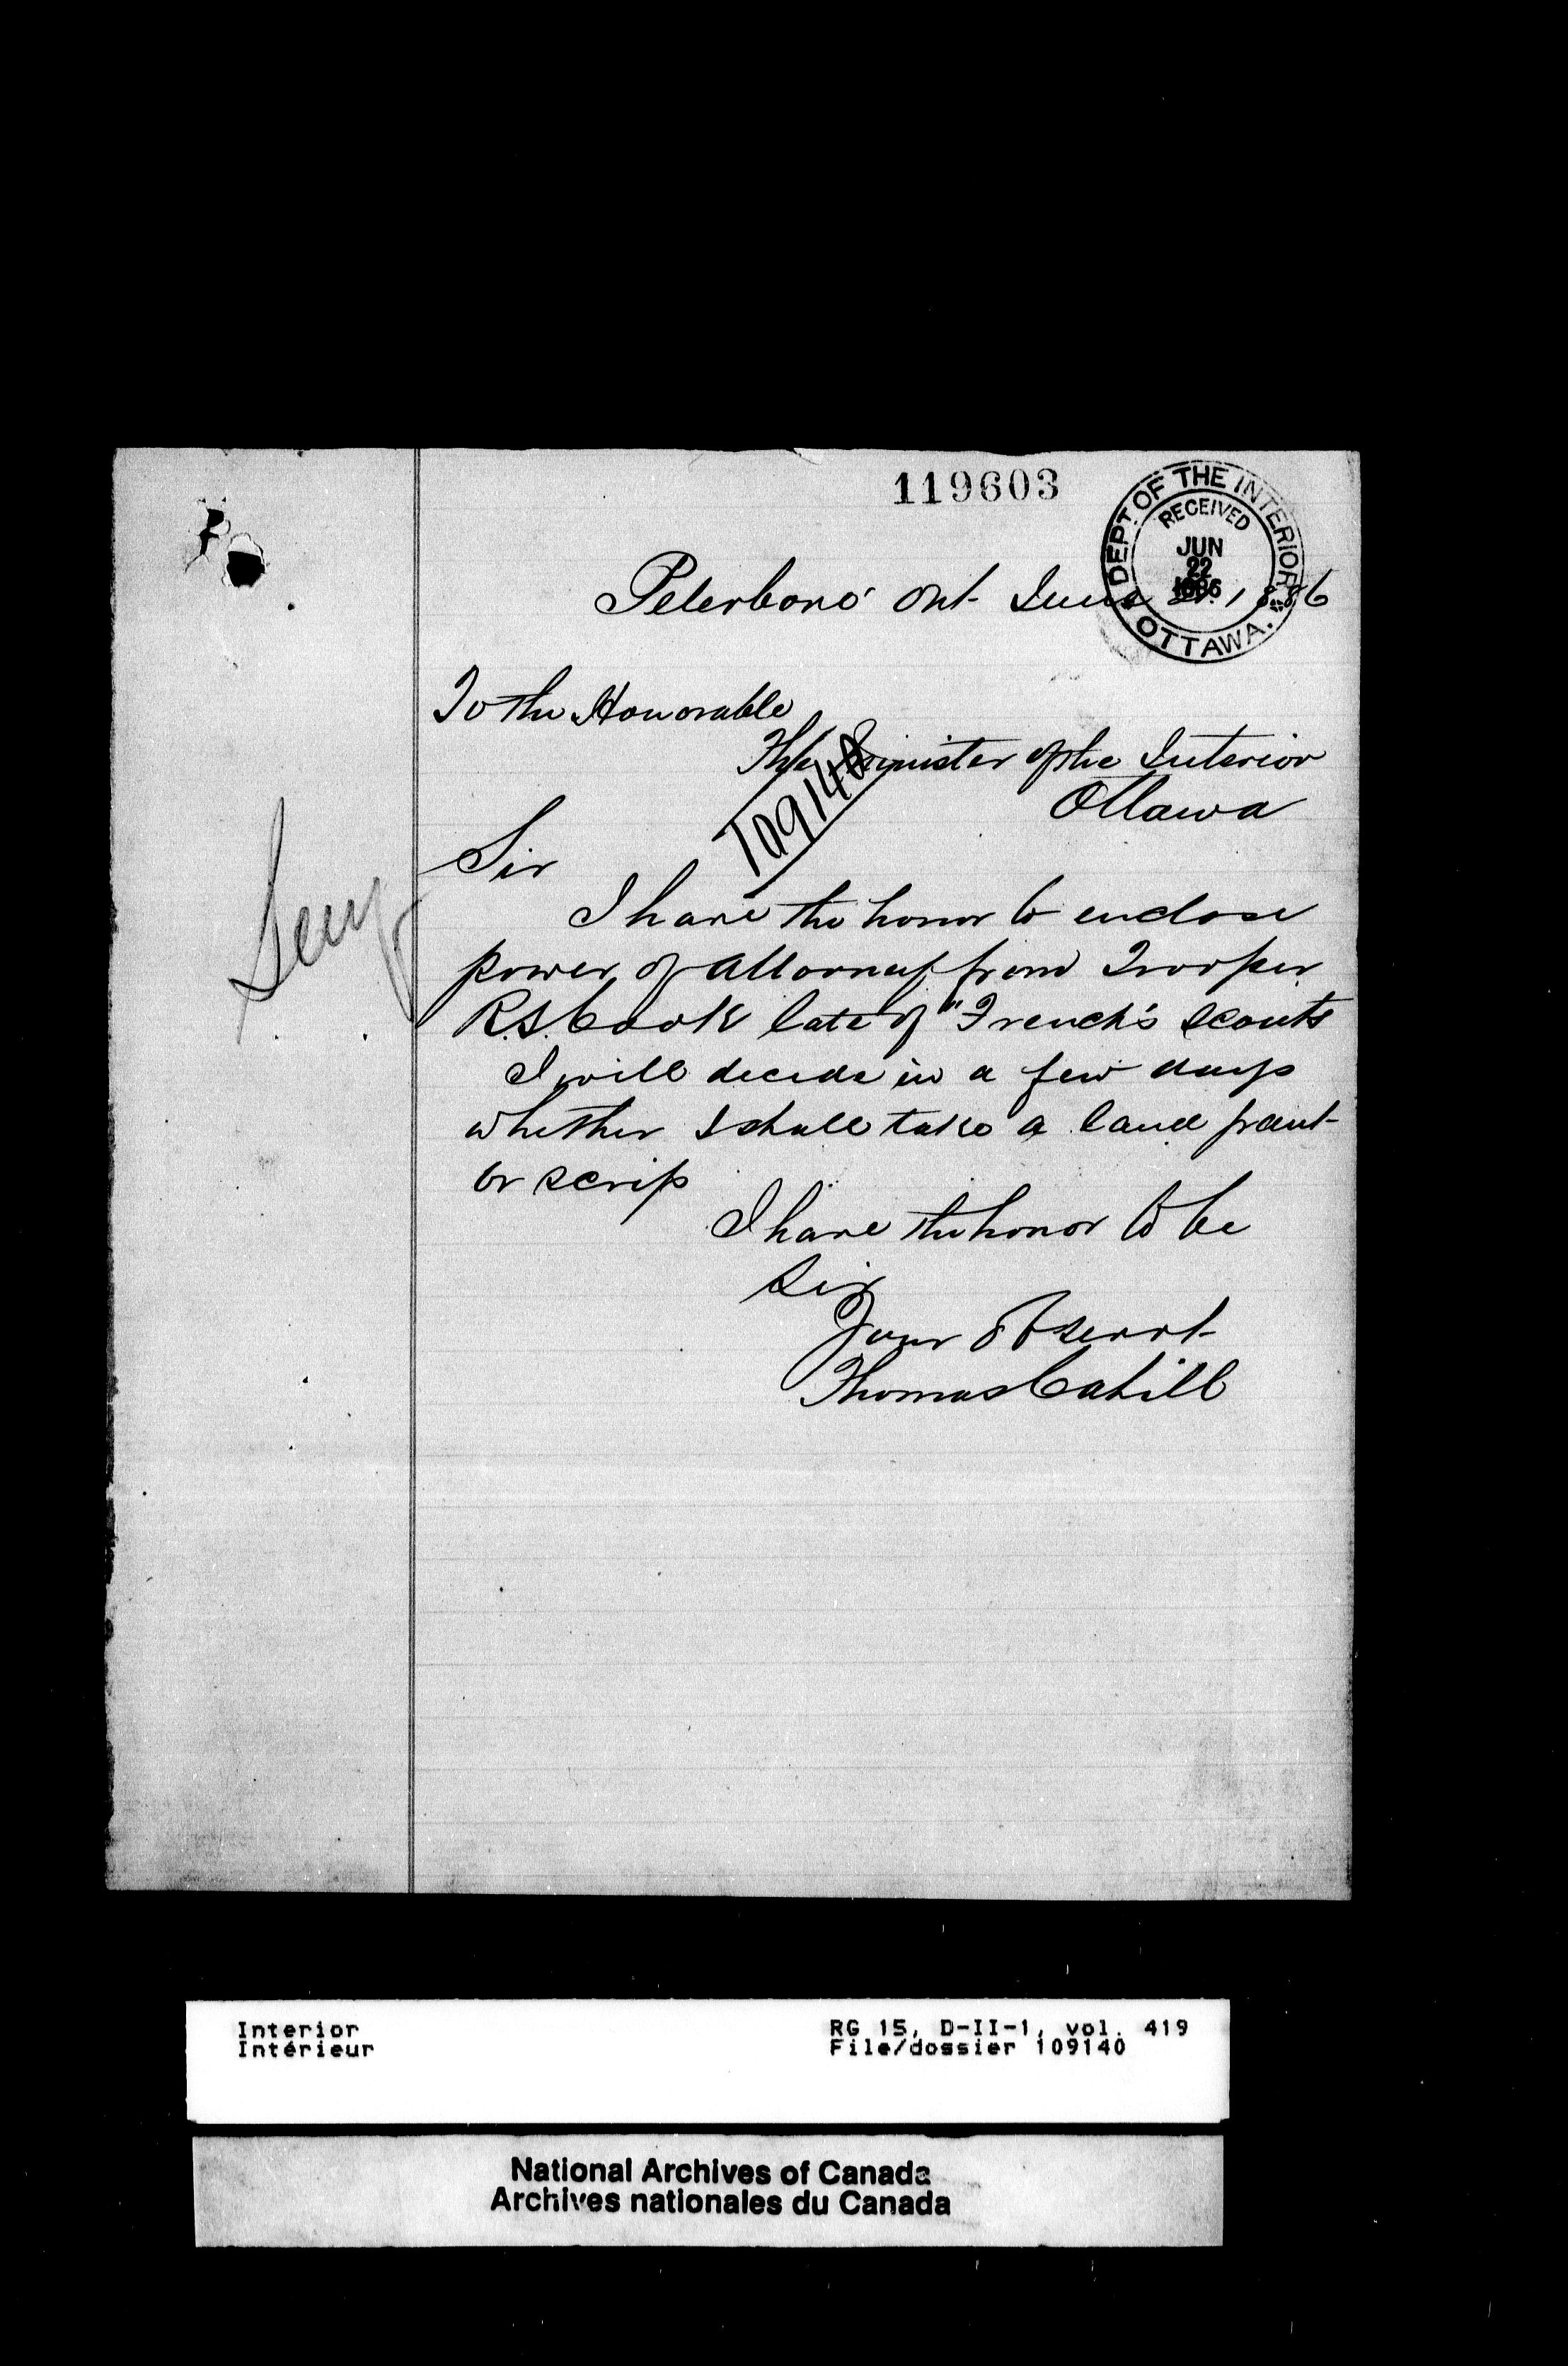 119603
DEPT. OF THE INTERIOR
RECEIVED
JUN
22
1886
OTTAWA.
Peterboro' Ont June 21. 1886
To the Honorable
The Minister of the Interior
Ottawa
109140
Sir
I have the honor to enclose
power of Attorney from Trooper
R.S. Cook late of "French's Scouts
I will decide in a few days
whether I shall take a land grant
or scrip
I have the honor to be
Sir
Your Obt Servt
Thomas Cahill
Interior
Intérieur
RG 15, D-II-1, vol. 419
File/dossier 109140
National Archives of Canada
Archives nationales du Canada